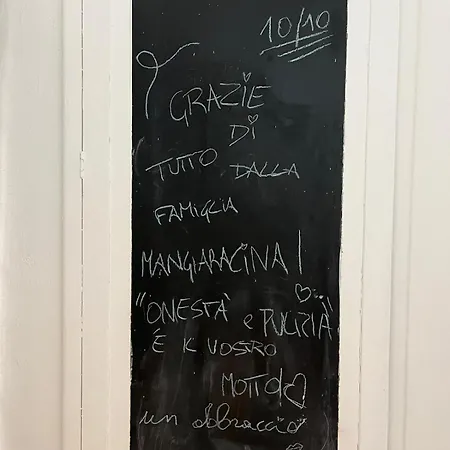 10/10
GRAZIE
DI
TUTTO DALLA
FAMIGLIA
MANGIARACINA!
"ONESTÀ e PULIZIA"
É IL VOSTRO
MOTTO
un abbraccio